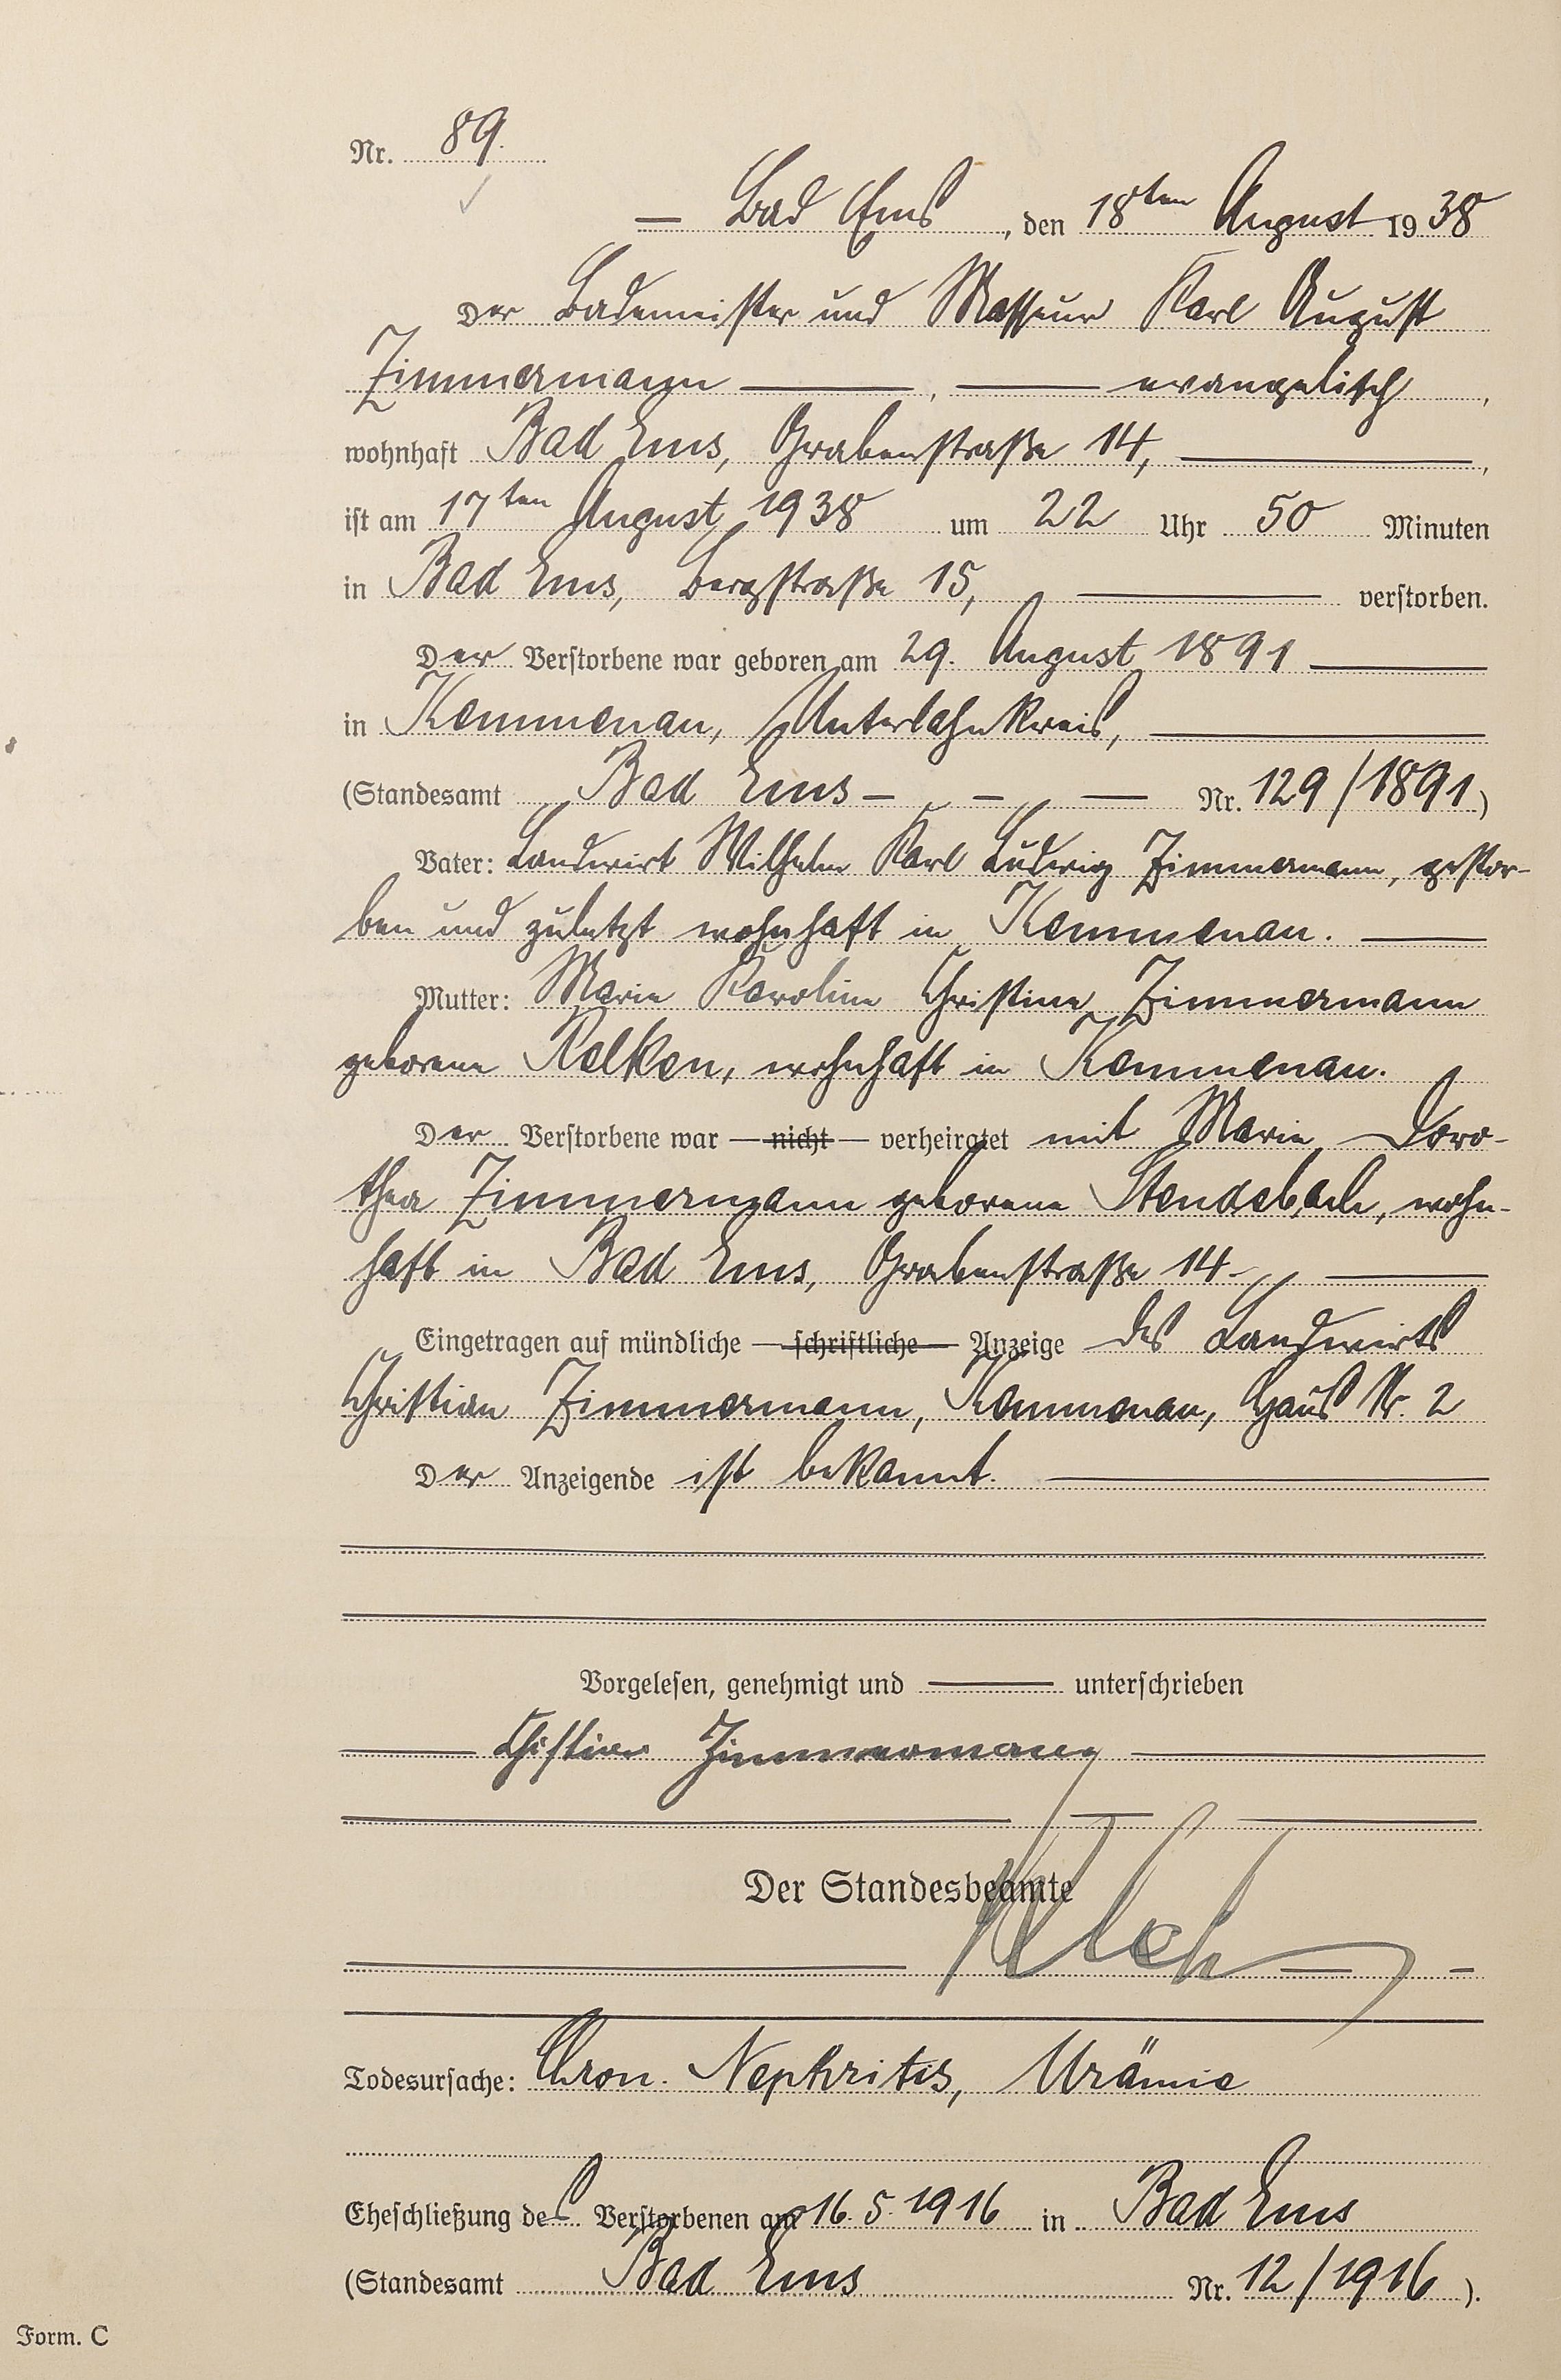 Nr. 89.
— Bad Ems, den 18ten August 1938
Der Bademeister und Masseur Karl August
Zimmermann ——, —— evangelisch,
wohnhaft Bad Ems, Grabenstraße 14, ——,
ist am 17ten August 1938 um 22 Uhr 50 Minuten
in Bad Ems, Bergstraße 15, —— verstorben.
Der Verstorbene war geboren am 29. August 1891 ——
in Kemmenau, Unterlahnkreis, ——
(Standesamt Bad Ems — — — Nr. 129/1891)
Vater: Landwirt Wilhelm Karl Ludwig Zimmermann, gestor-
ben und zuletzt wohnhaft in Kemmenau. ——
Mutter: Marie Karoline Christine Zimmermann
geborene Kelken, wohnhaft in Kemmenau.
Der Verstorbene war — nicht — verheiratet mit Marie Doro-
thea Zimmermann geborene Stendebach, wohn-
haft in Bad Ems, Grabenstraße 14. ——
Eingetragen auf mündliche — schriftliche — Anzeige des Landwirts
Christian Zimmermann, Kemmenau, Haus Nr. 2
Der Anzeigende ist bekannt. ——
Vorgelesen, genehmigt und —— unterschrieben
—— Christian Zimmermann ——
Der Standesbeamte
Todesursache: Chron. Nephritis, Urämie
Eheschließung des Verstorbenen am 16.5.1916 in Bad Ems
(Standesamt Bad Ems Nr. 12/1916).
Form. C